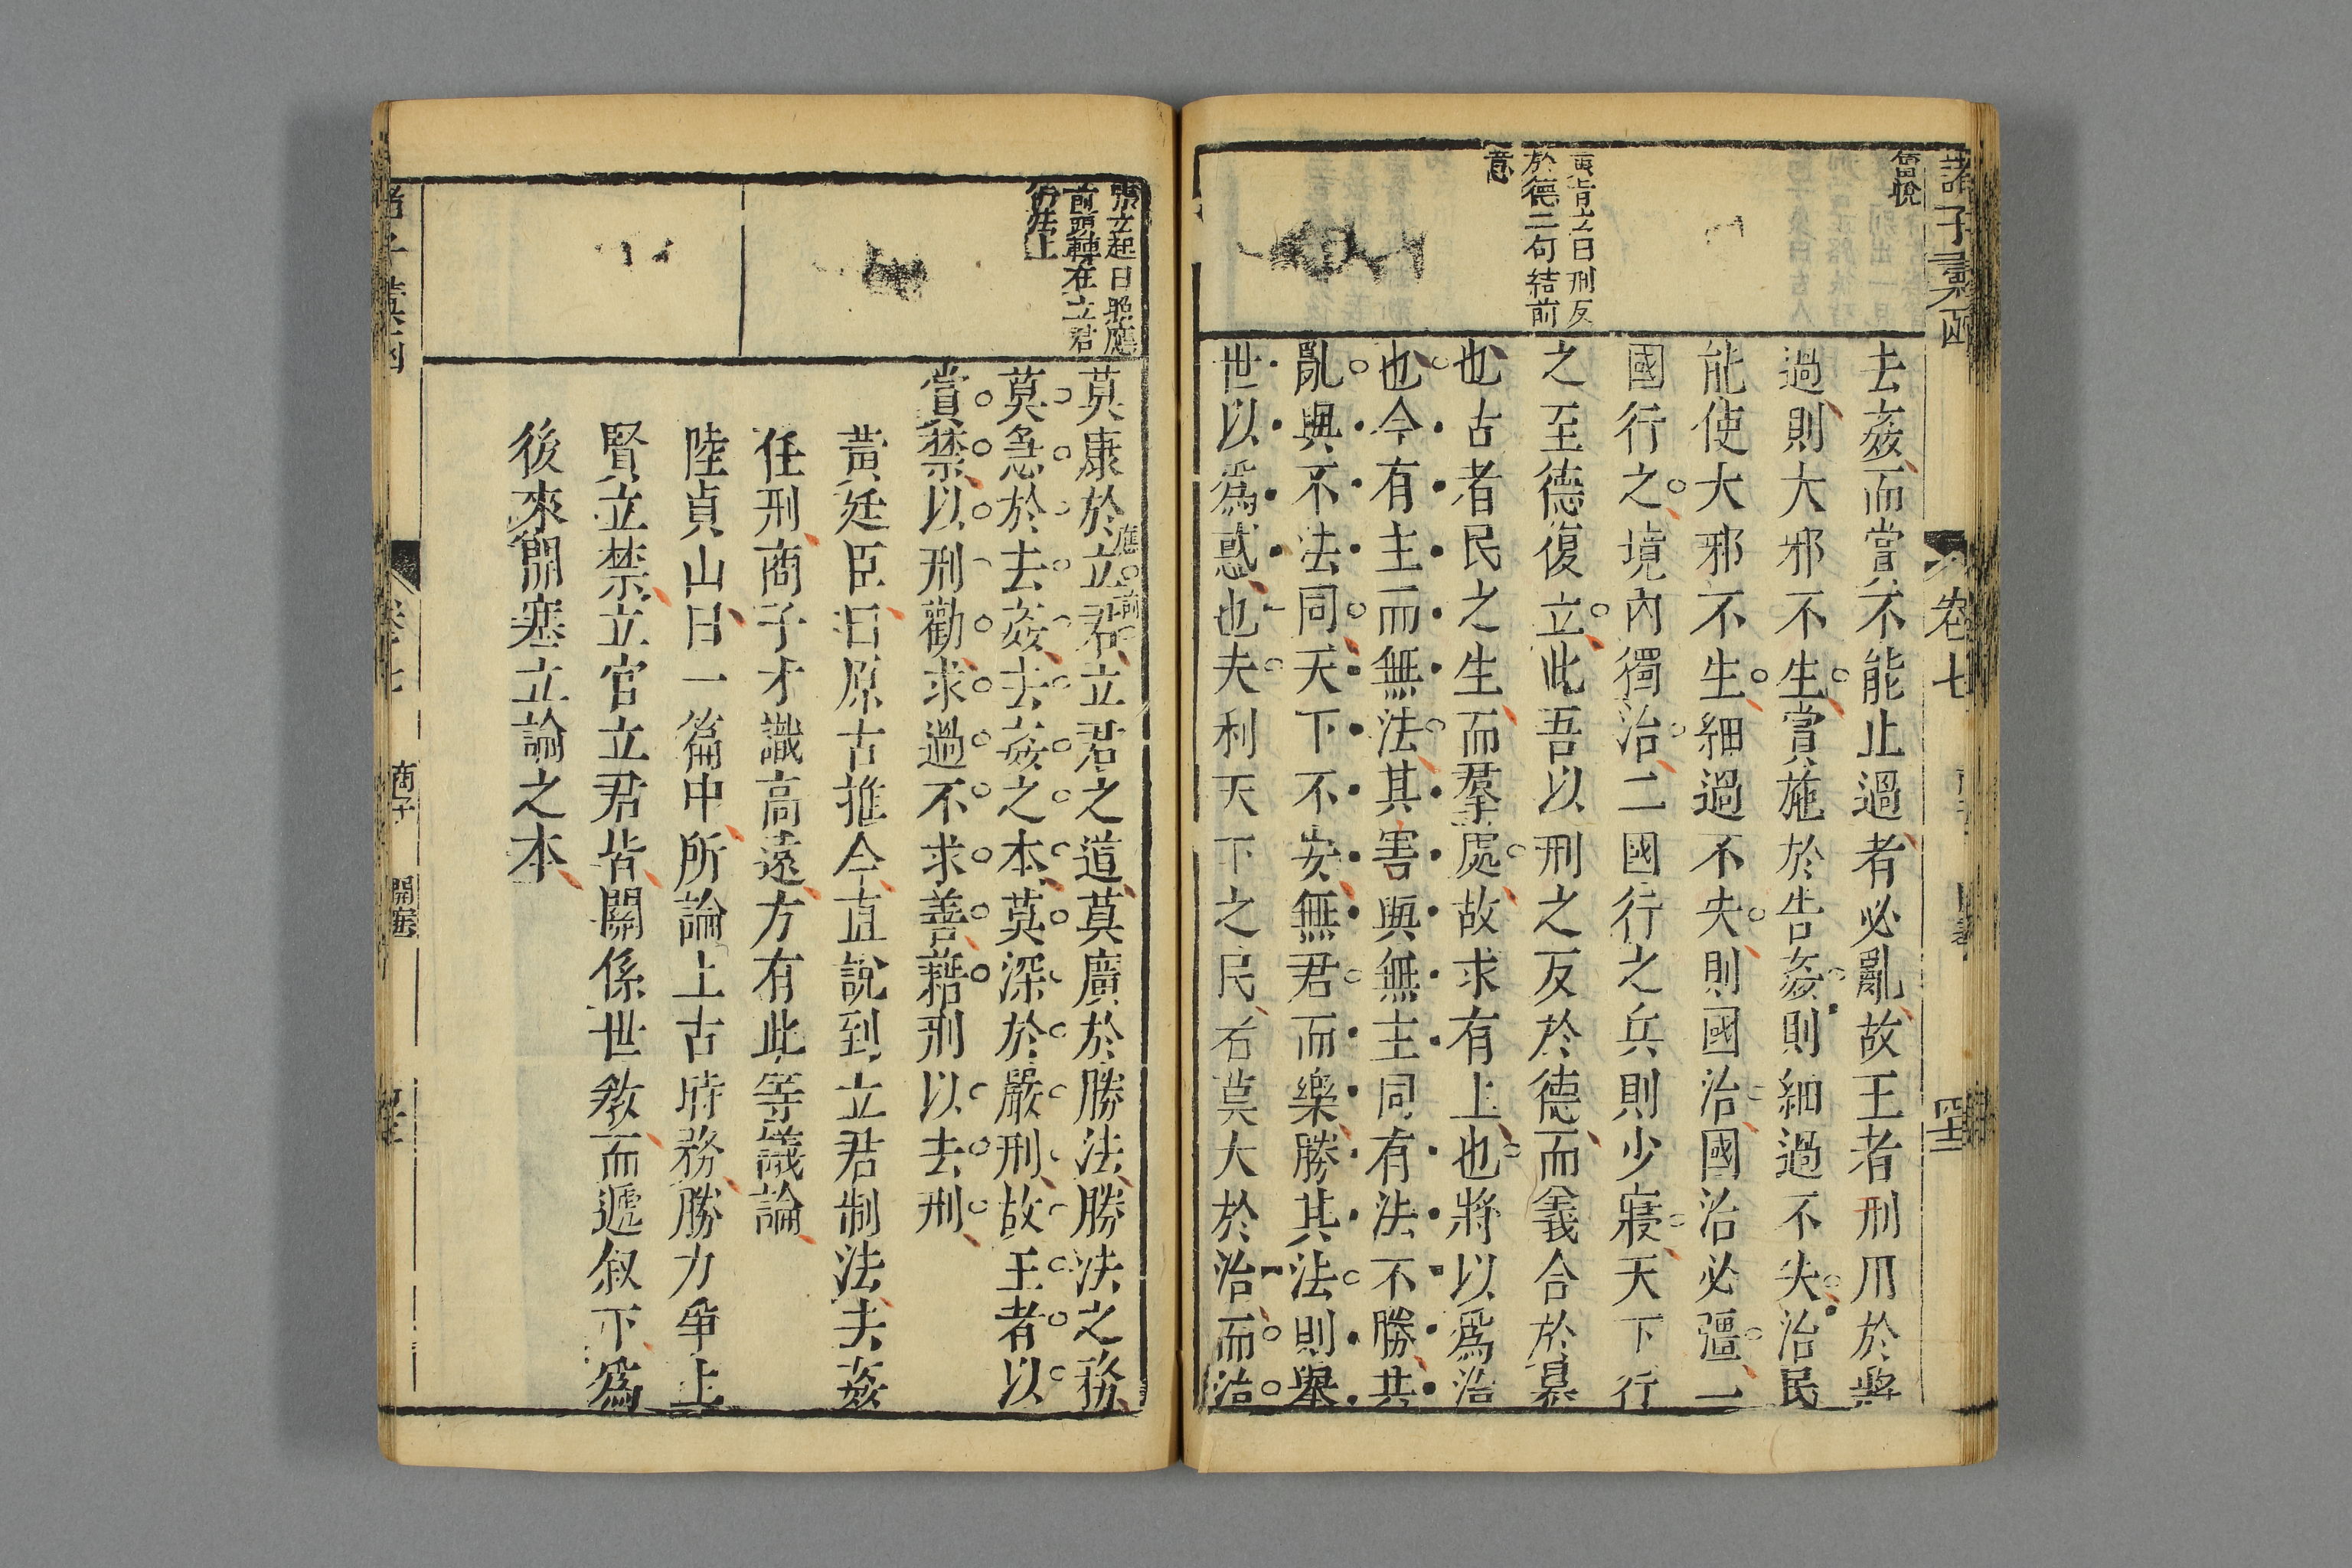 諸子彙函
卷七
去姦而賞不能止過者必亂故王者刑用於將
過則大邪不生賞施於告姦則細過不失治民
能使大邪不生細過不失則國治國治必彊一
國行之境內獨治二國行之兵則少寢天下行
之至德復立此吾以刑之反於德而義合於暴
也古者民之生而羣處故求有上也將以爲治
也今有主而無法其害與無主同有法不勝其
亂與不法同天下不安無君而樂勝其法則舉
世以爲惑也夫利天下之民者莫大於治而治
曰刑反
於德二句結前
意
莫康於立君立君之道莫廣於勝法勝法之務
莫急於去姦去姦之本莫深於嚴刑故王者以
賞禁以刑勸求過不求善藉刑以去刑
黃廷臣曰原古推今直說到立君制法去姦
任刑商子才識高遠方有此等議論
陸貞山曰一篇中所論上古時務勝力爭上
賢立禁立官立君皆關係世教而遞叙下爲
後來開塞立論之本
起曰照應
前頭轉在立君
勝法上
商子
開塞